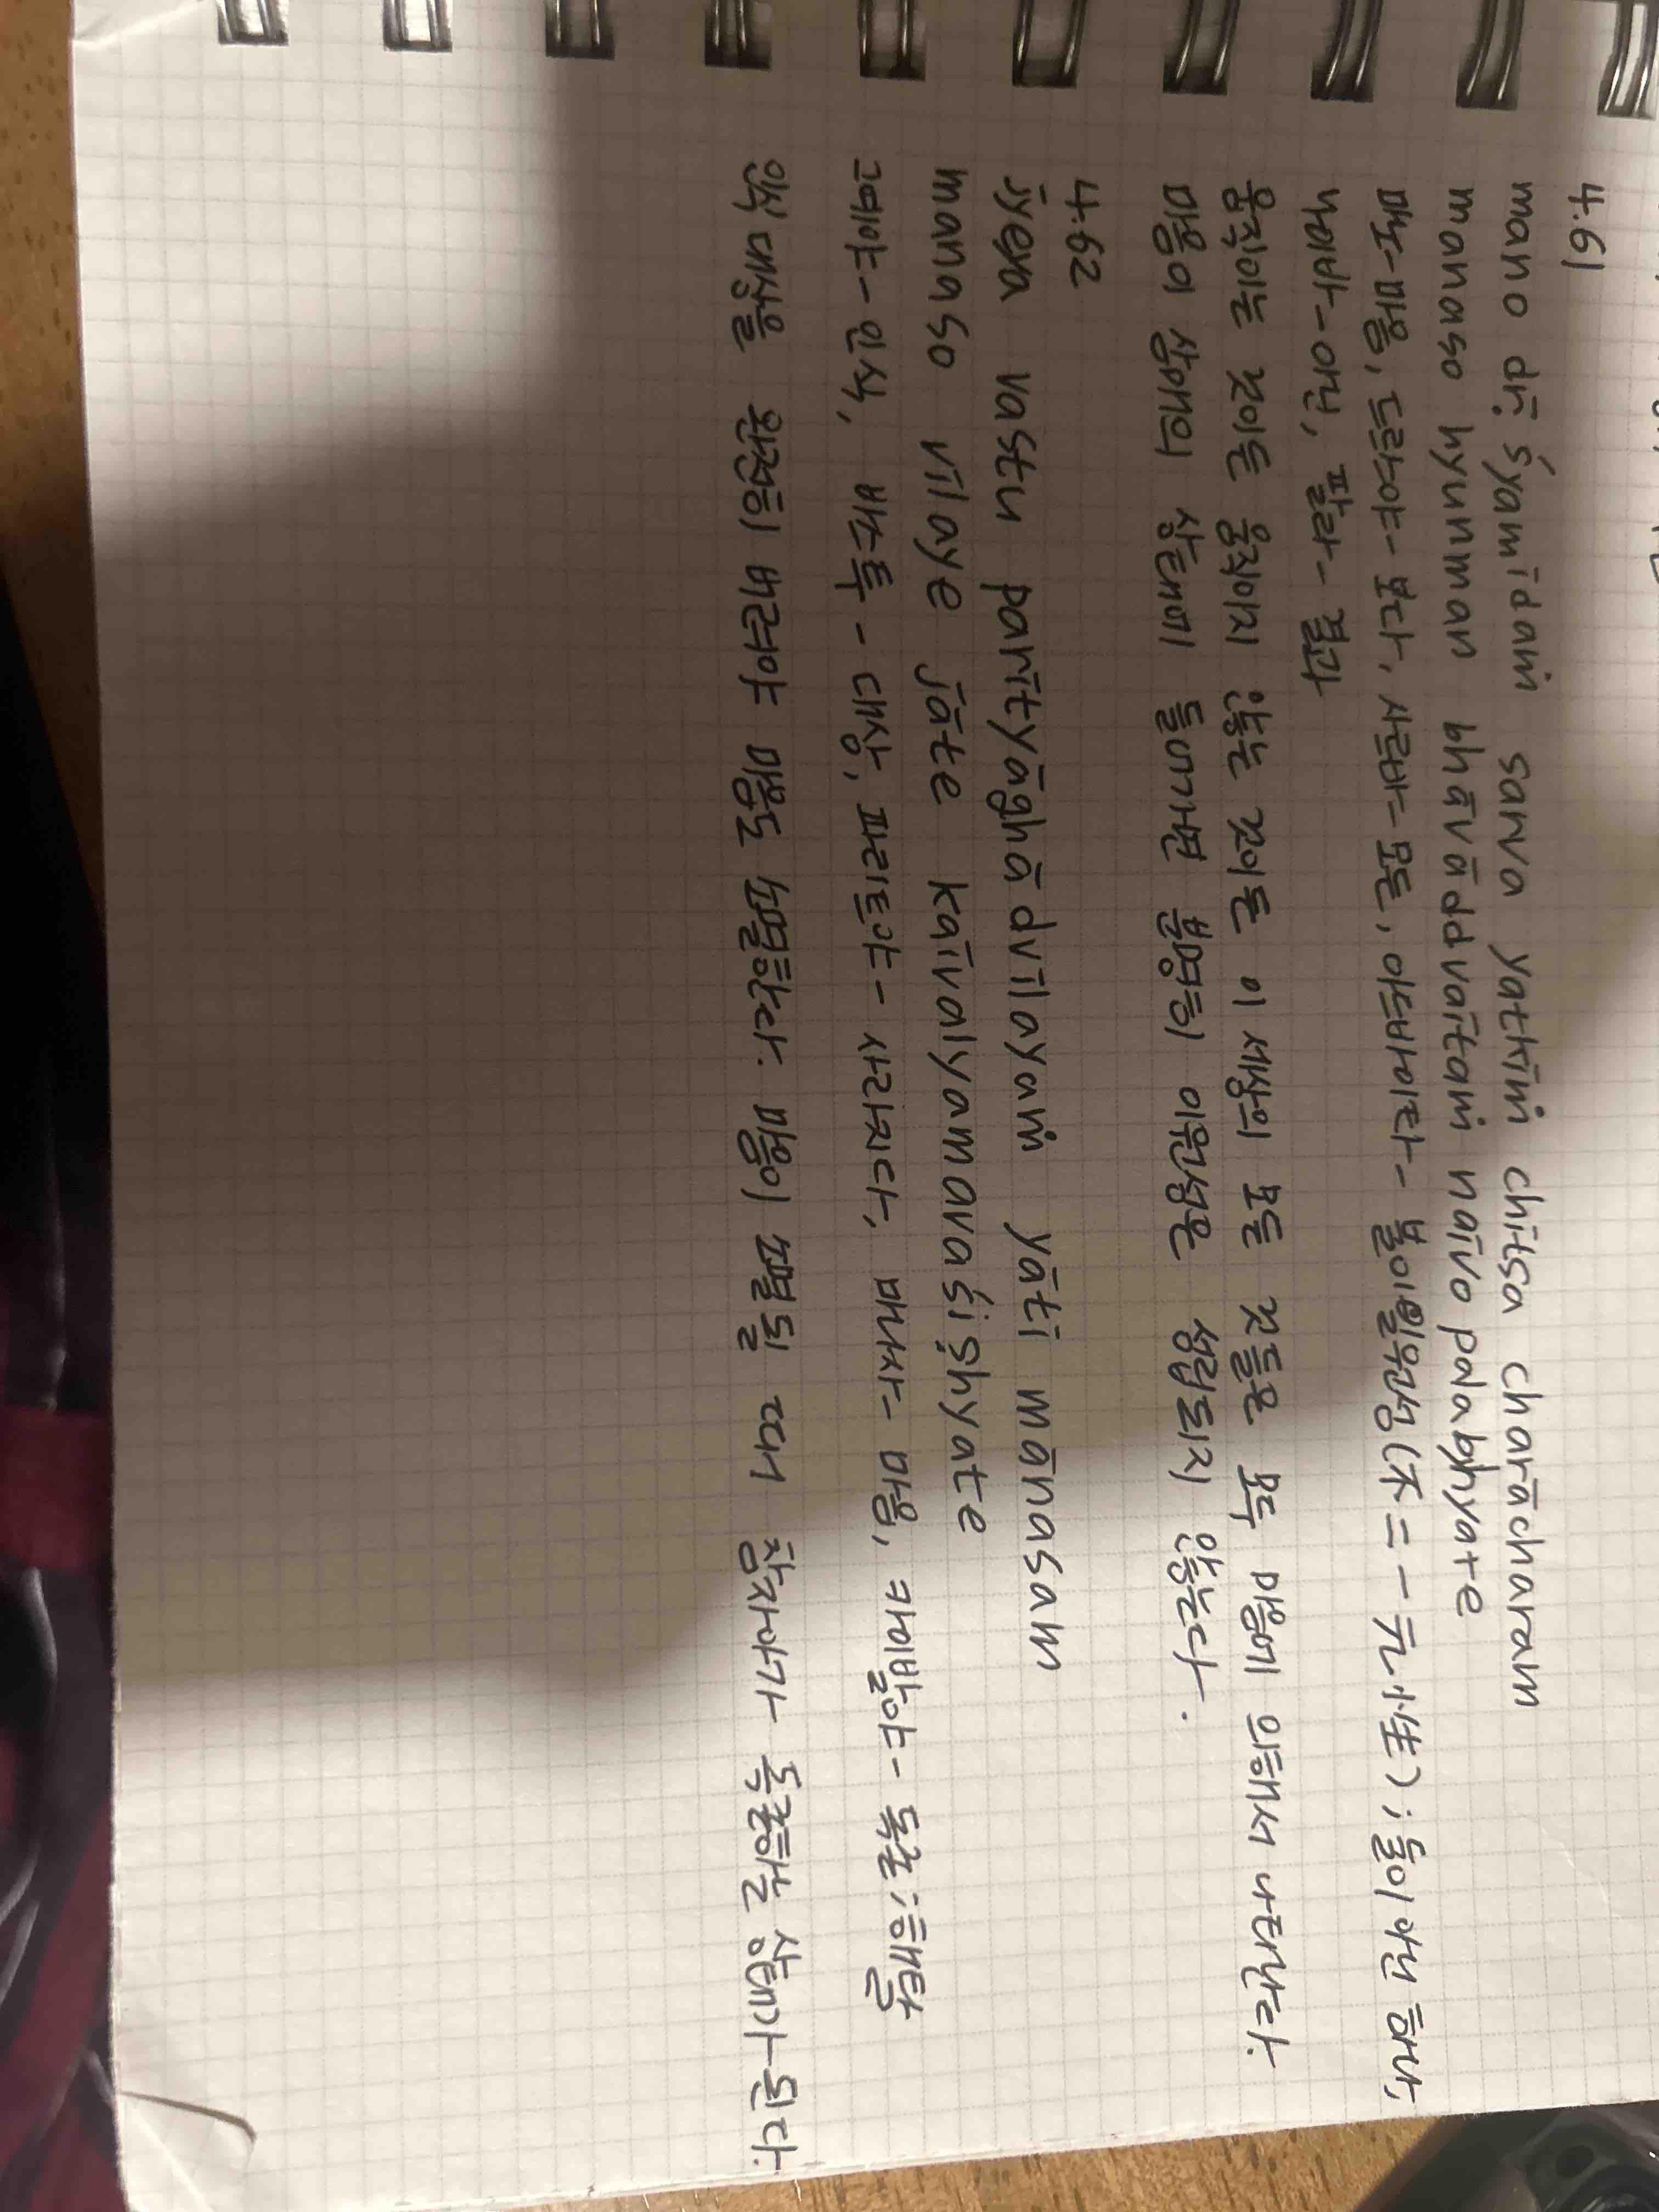 4.61
mano dṛ śyamīdaṁ sarva yatkīṁ chītsa charācharam
manaso hyunman bhāvāddvaītaṁ naīvo palabhyate
매노-마음, 드르샤야- 보다, 사르바- 모든, 아드바이타- 불이일원성(不二一元性); 둘이 아닌 하나,
나이바-아닌, 팔라- 결과
움직이는 것이든 움직이지 않는 것이든 이 세상의 모든 것들은 모두 마음에 의해서 나타난다.
마음이 삼매의 상태에 들어가면 분명히 이원성은 성립되지 않는다.
4.62
jyeya vastu parītyāghādvīlayaṁ yātī mānasam
manaso vīlaye jāte kaīvalyamavaśiṣhyate
그예야- 인식, 바스투 - 대상, 파리트야- 사라지다, 매나사- 마음, 카이발야- 독존; 해탈
인식 대상을 완전히 버려야 마음도 소멸한다. 마음이 소멸될 때 참자아가 독존하는 상태가 된다.